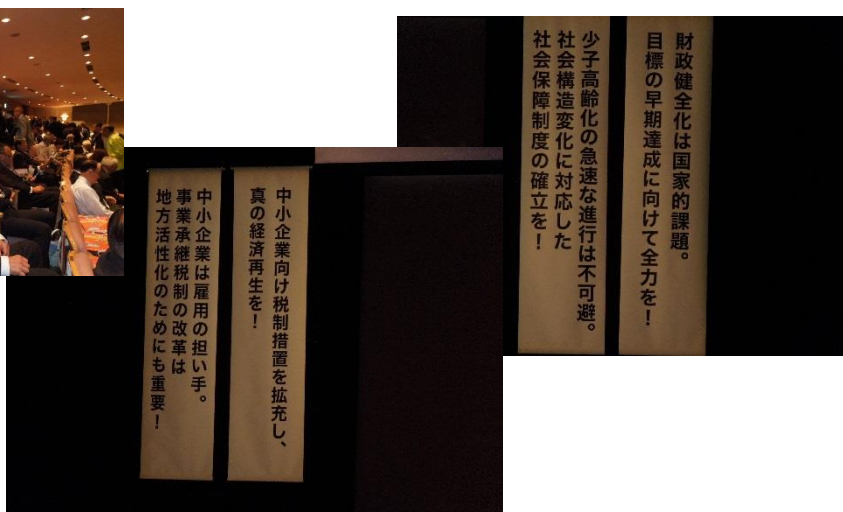 財政健全化は国家的課題。
目標の早期達成に向けて全力を！
少子高齢化の急速な進行は不可避。
社会構造変化に対応した
社会保障制度の確立を！
中小企業向け税制措置を拡充し、
真の経済再生を！
中小企業は雇用の担い手。
事業承継税制の改革は
地方活性化のためにも重要！